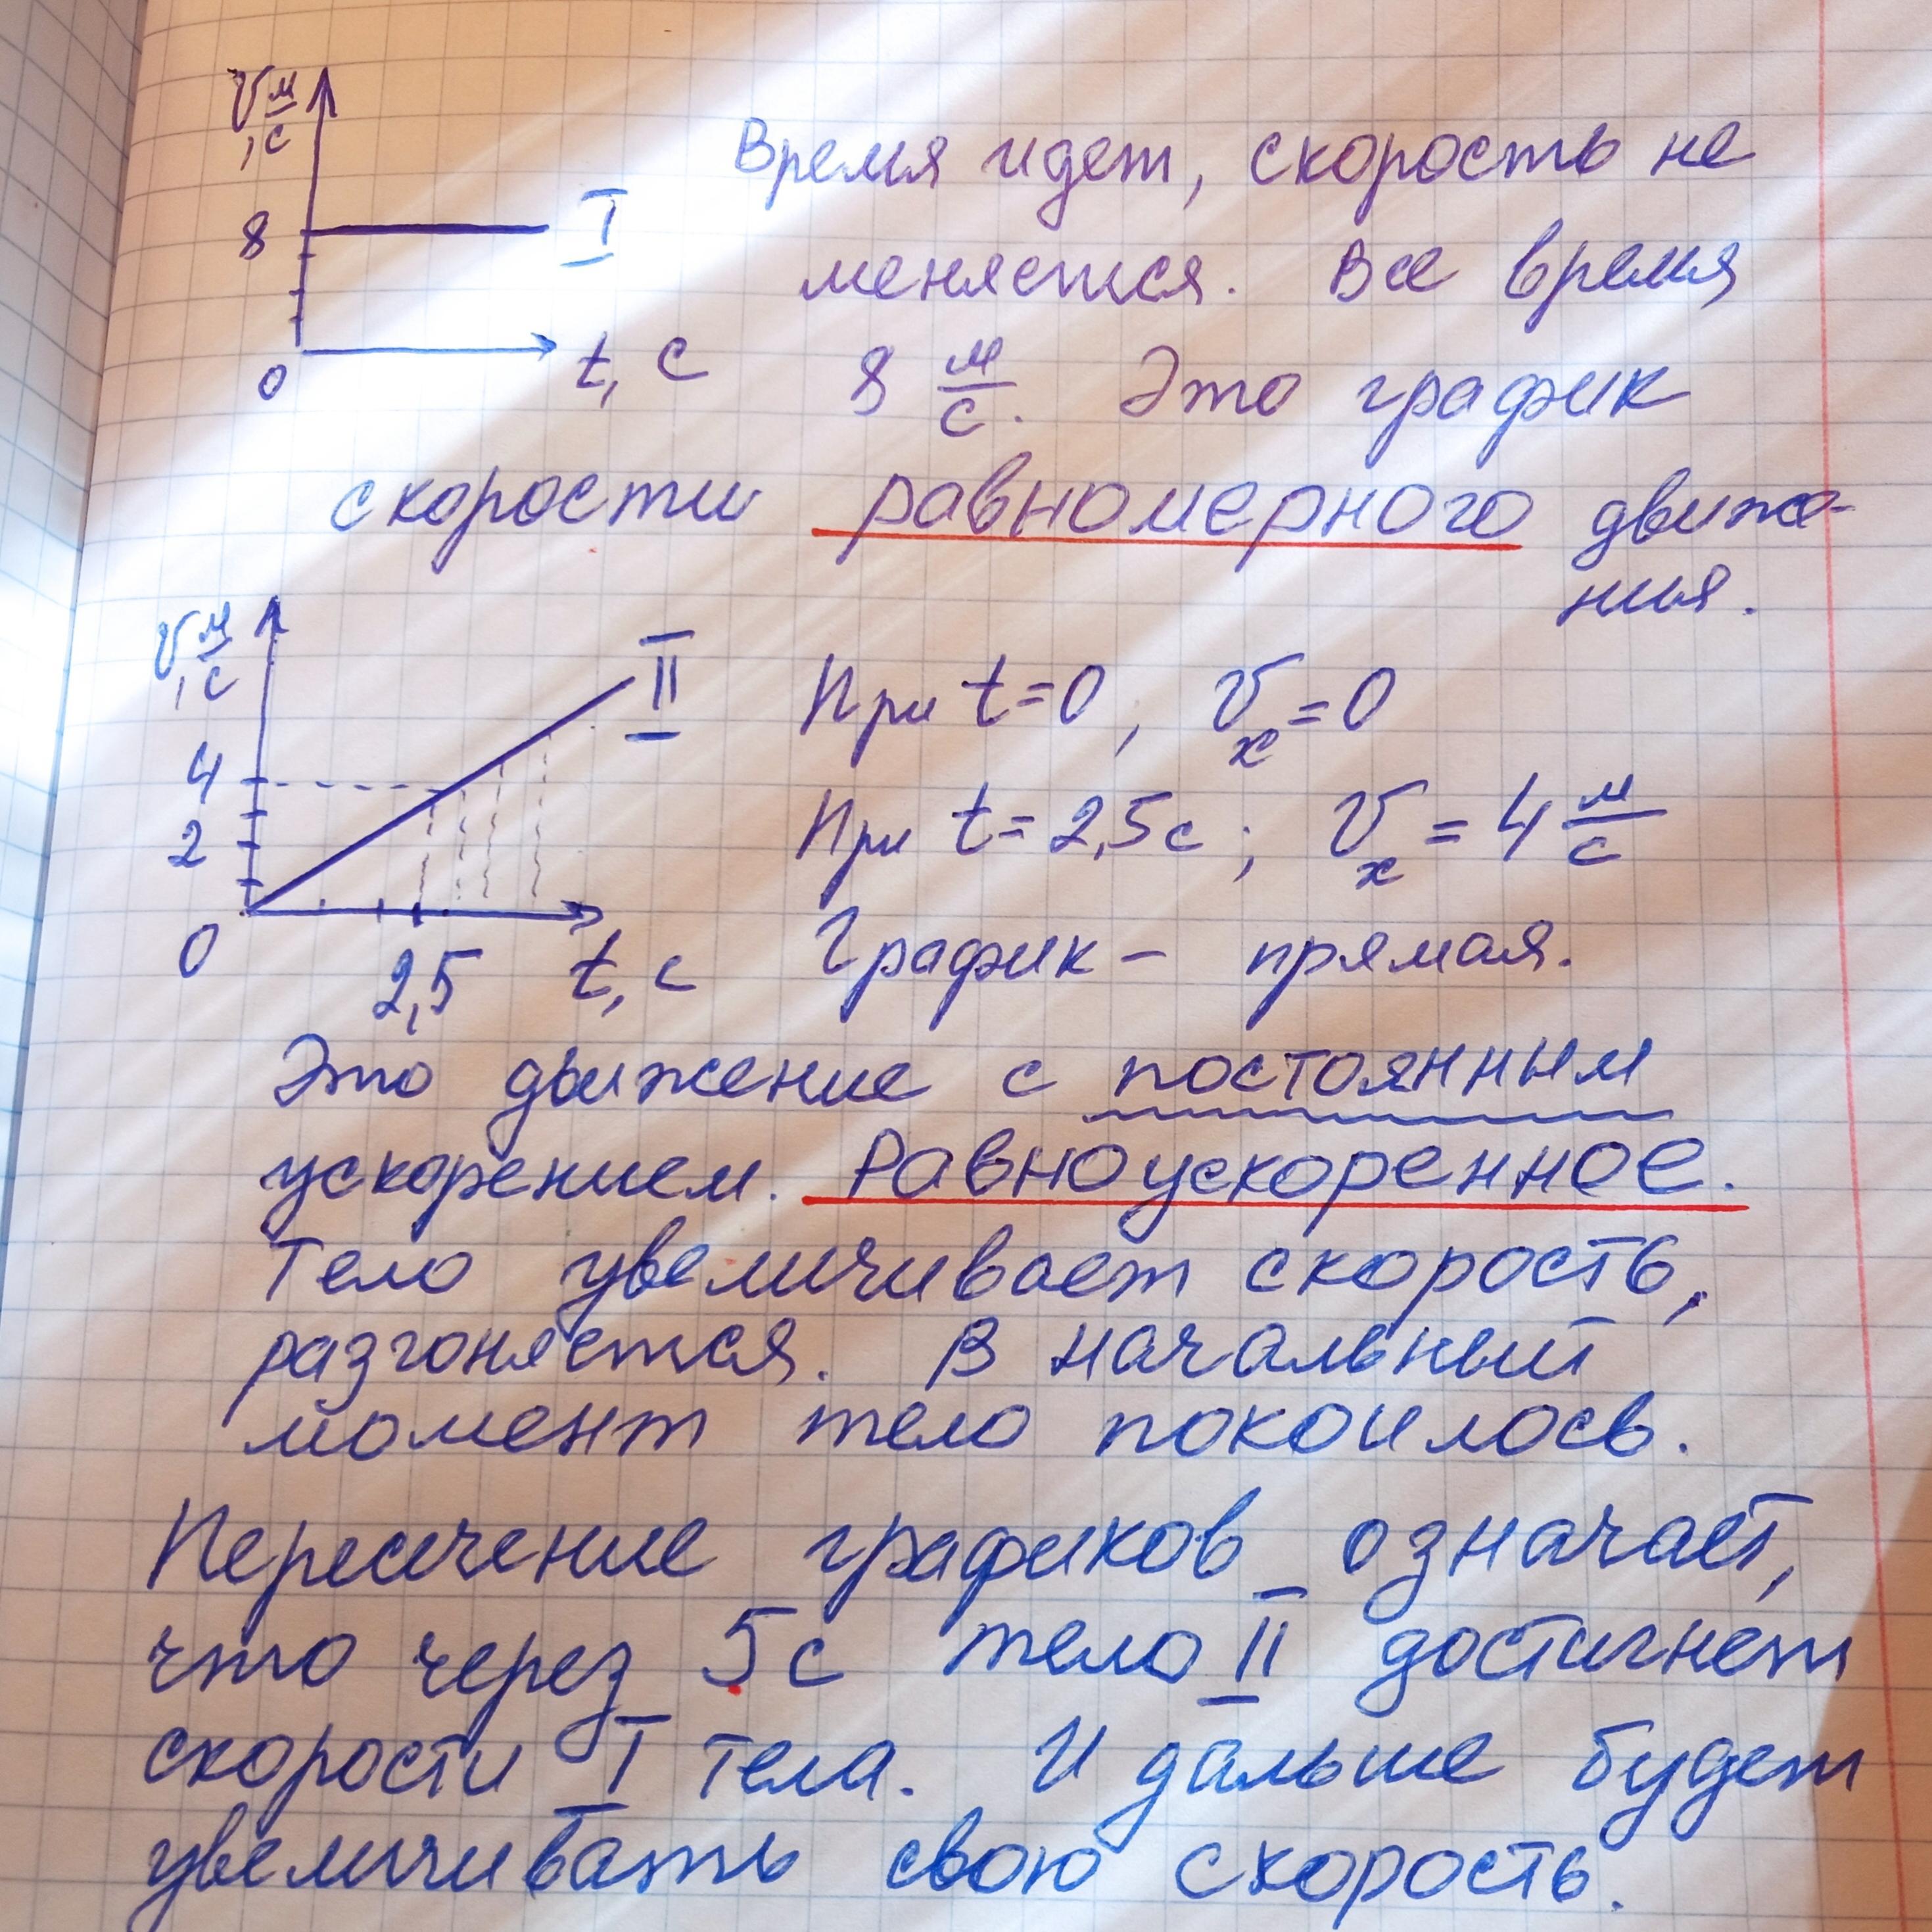 V, м/с
8
I
0
t, с
Время идет, скорость не
меняется. Все время
8 м/с. Это график
скорости равномерного движе-
ния.
V, м/с
4
2
0
2,5
t, с
II
При t=0, Vx=0
При t=2,5с; Vx=4 м/с
График – прямая.
Это движение с постоянным
ускорением. Равноускоренное.
Тело увеличивает скорость,
разгоняется. В начальный
момент тело покоилось.
Пересечение графиков означает,
что через 5с тело II достигнет
скорости I тела. И дальше будет
увеличивать свою скорость.